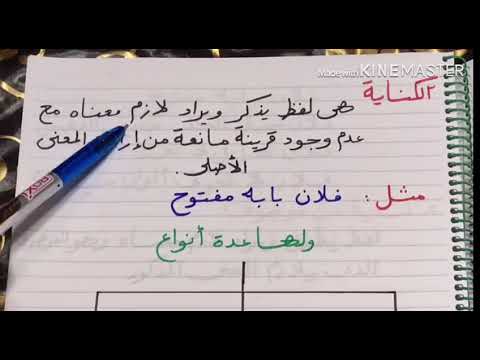 Made with KINEMASTER
الكناية
هى لفظ يذكر ويراد لازم معناه مع
عدم وجود قرينة مانعة من المعنى
الأصلى.
مثل: فلان بابه مفتوح
ولها عدة أنواع